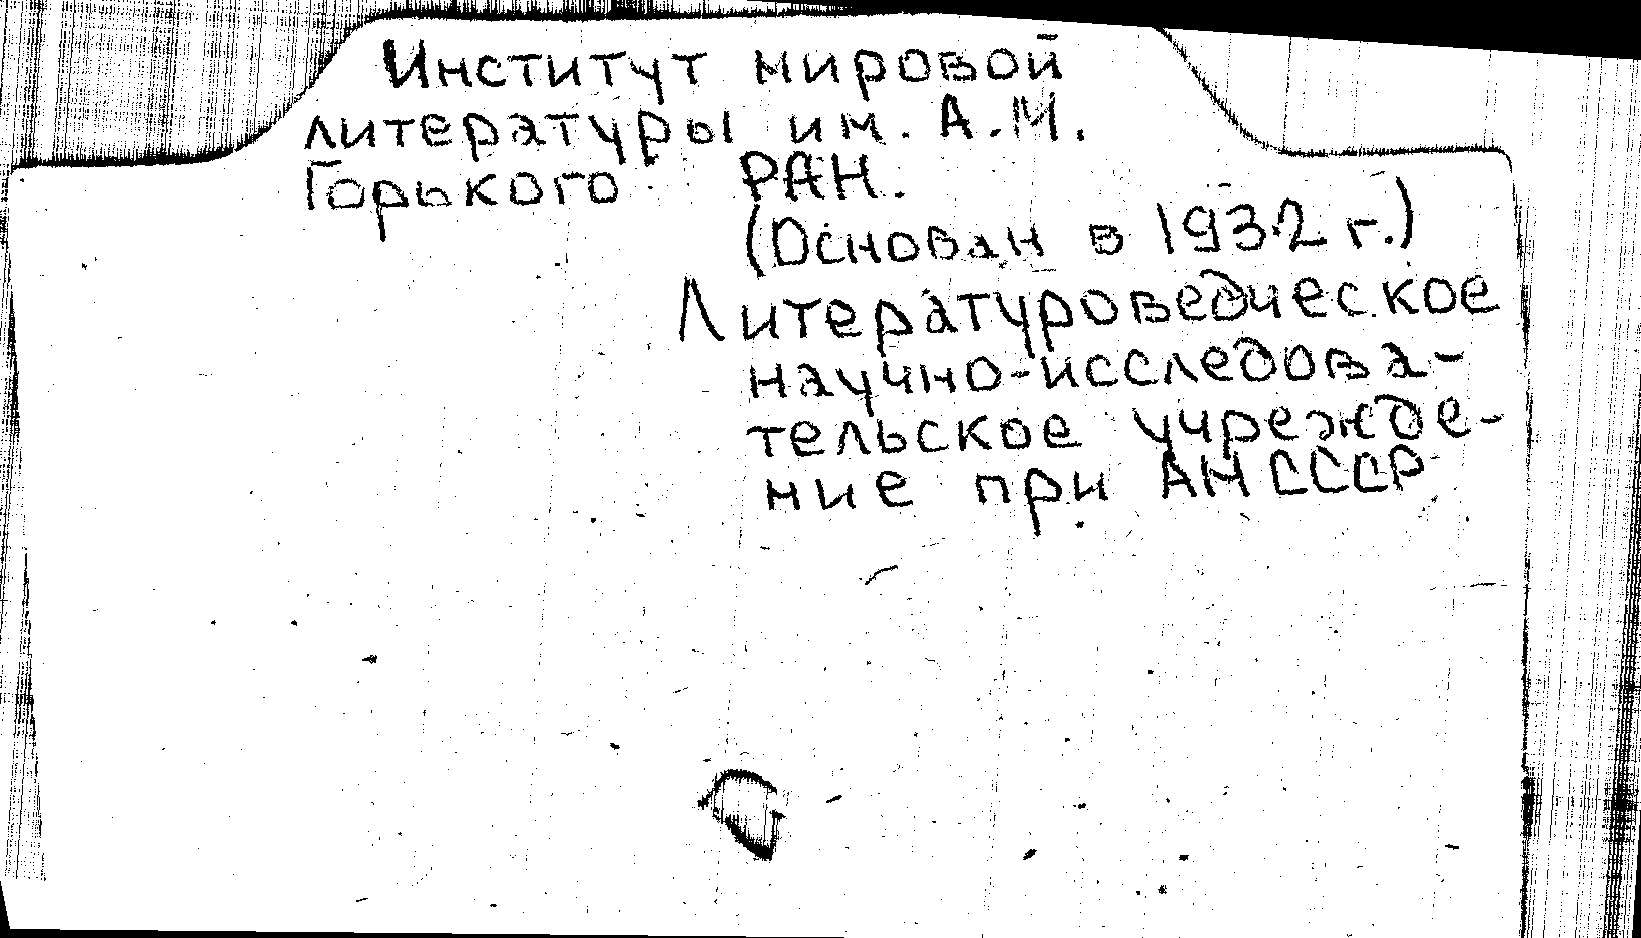 Институт мировой
литературы им. А.М.
Горького РАН.
(Основан в 1932 г.)
Литературоведческое
научно-исследова-
тельское учрежде-
ние при АН СССР